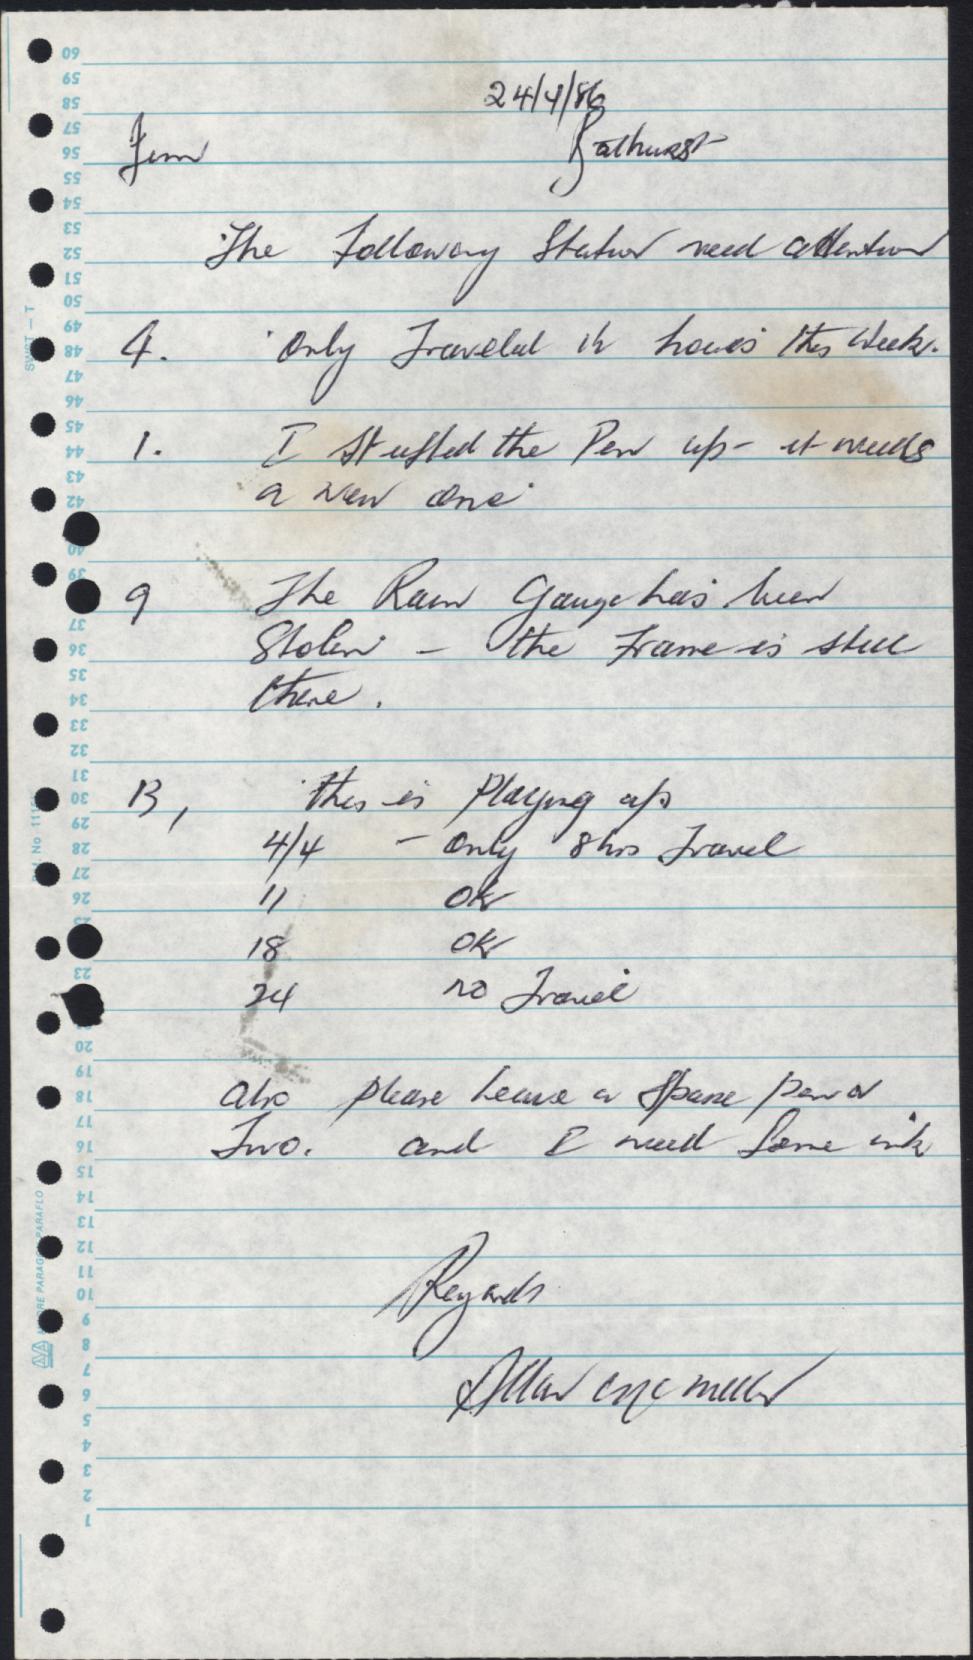 24/4/86
Jim
Bathurst
The Following Station need attention
4. Only Traveled 12 hours this Week.
1. I stuffed the Pen up - it needs
a new one
9 The Rain Gauge has been
Stolen - the Frame is still
there.
B, this is Playing up
4/4 - Only 8hrs Travel
11 OK
18 OK
24 no Travel
Also please Leave a Spare pen or
Two. and I need Some ink
Regards
Allan McMillan
60
59
58
57
56
55
54
53
52
51
50
49
48
47
46
45
44
43
42
40
39
37
36
35
34
33
32
31
30
29
28
27
26
25
23
20
19
18
17
16
15
14
13
12
11
10
9
8
7
6
5
4
3
2
1